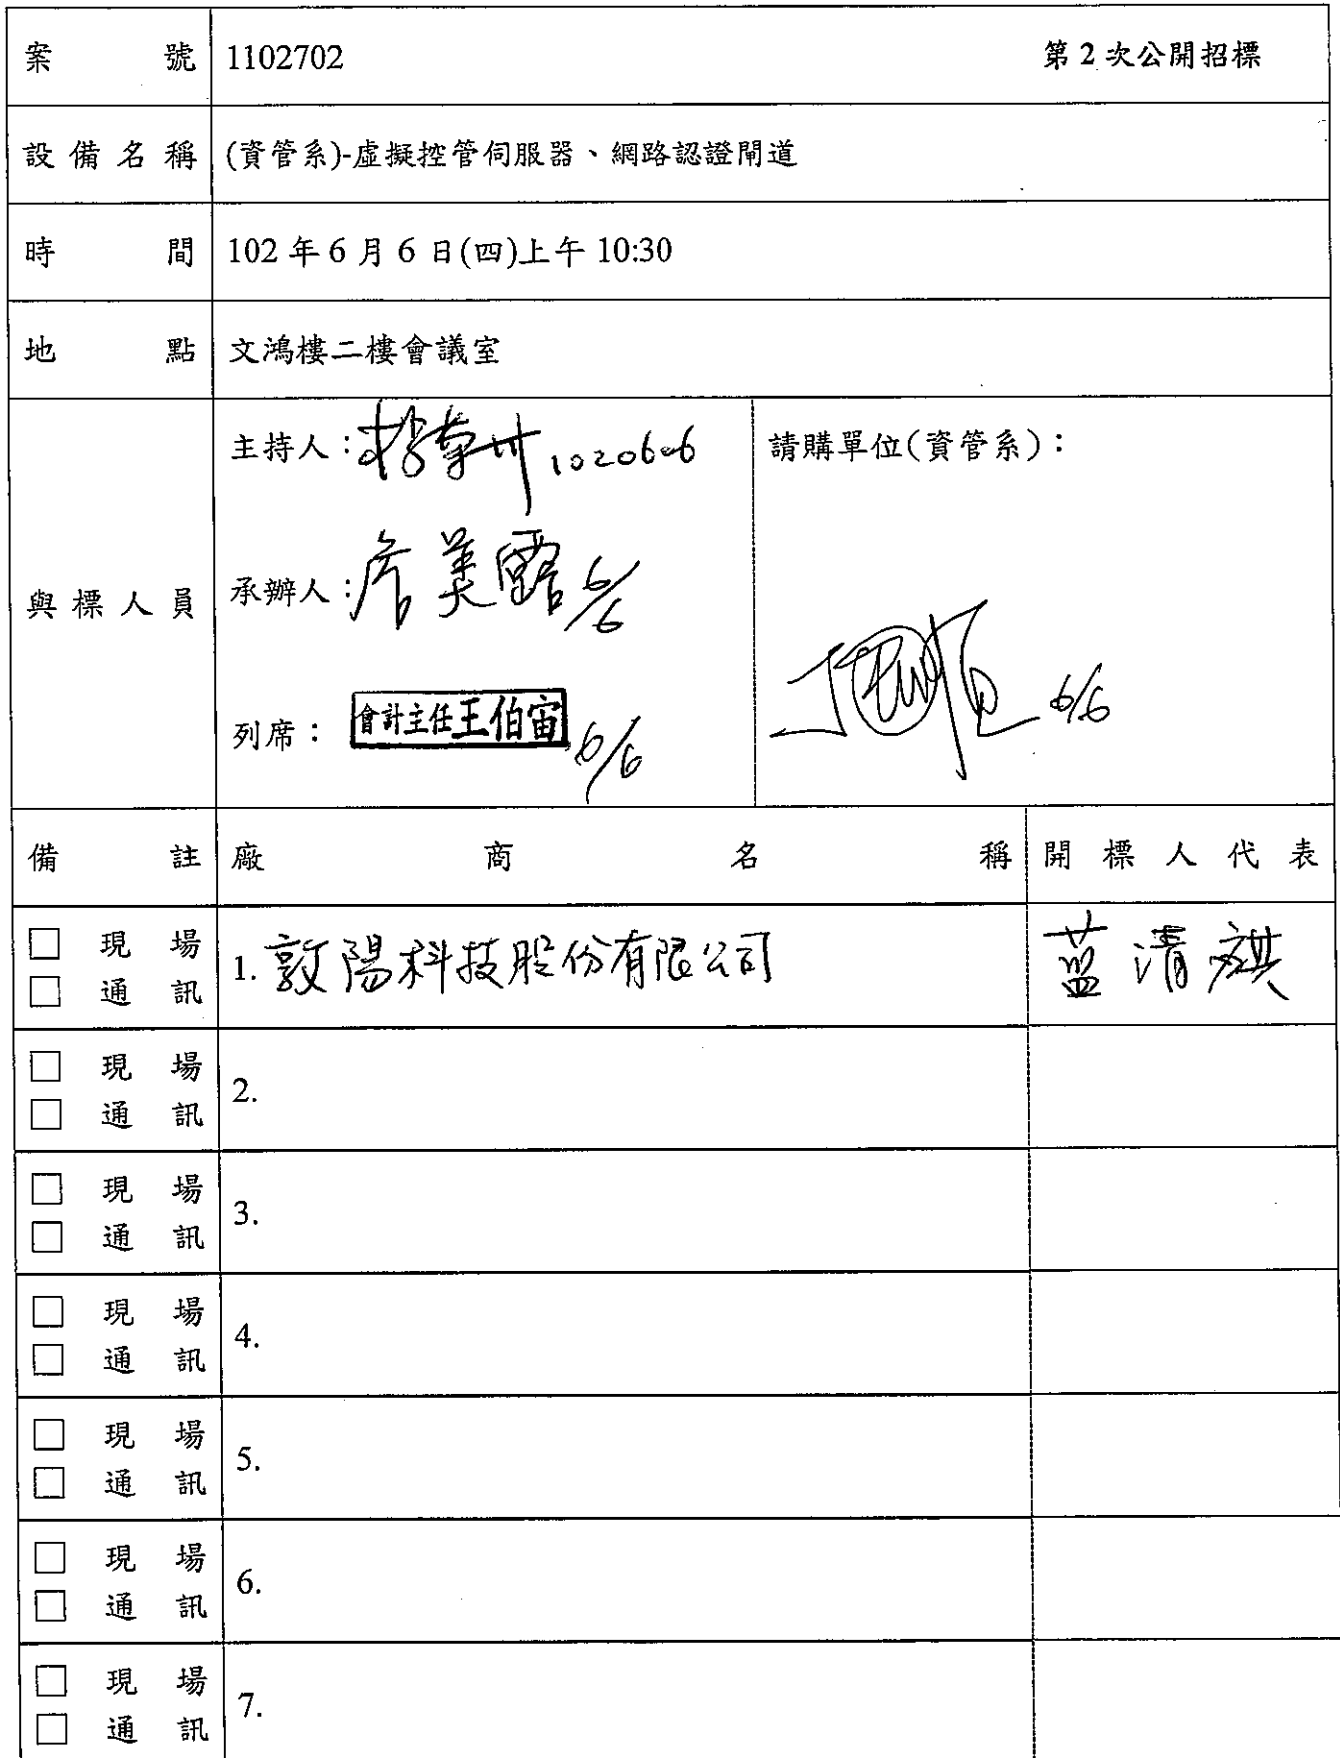 案號 1102702 第2次公開招標
設備名稱 (資管系)-虛擬控管伺服器、網路認證閘道
時間 102年6月6日(四)上午10:30
地點 文鴻樓二樓會議室
與標人員
主持人： 1020606
承辦人：詹美露 6/6
列席：會計主任王伯宙 6/6
請購單位(資管系)：
6/6
備註 廠商名稱 開標人代表
□ 現場
□ 通訊
1. 敦陽科技股份有限公司 藍清祺
□ 現場
□ 通訊
2.
□ 現場
□ 通訊
3.
□ 現場
□ 通訊
4.
□ 現場
□ 通訊
5.
□ 現場
□ 通訊
6.
□ 現場
□ 通訊
7.